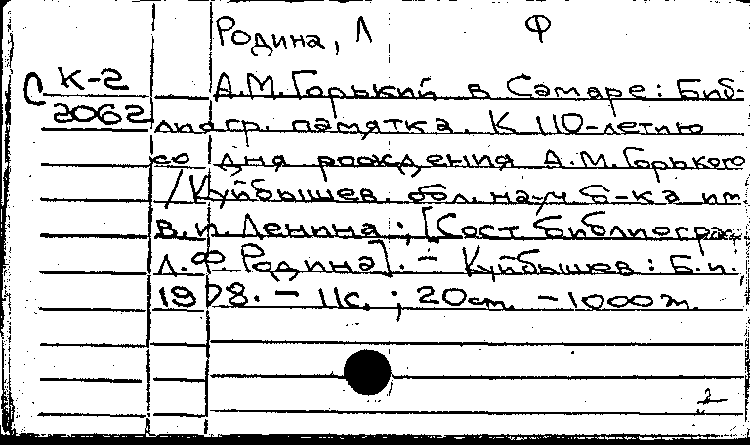 Родина, Л Ф
С К-2 А.М.Горький в Самаре: Биб-
2062 лиогр. памятка. К 110-летию
со дня рождения А.М.Горького
/Куйбышев. обл. науч б-ка им
В.И.Ленина; [Сост библиограф
Л.Ф.Родина]. - Куйбышев: Б.и.
1978. - 11с.; 20см. - 1000 т.
2